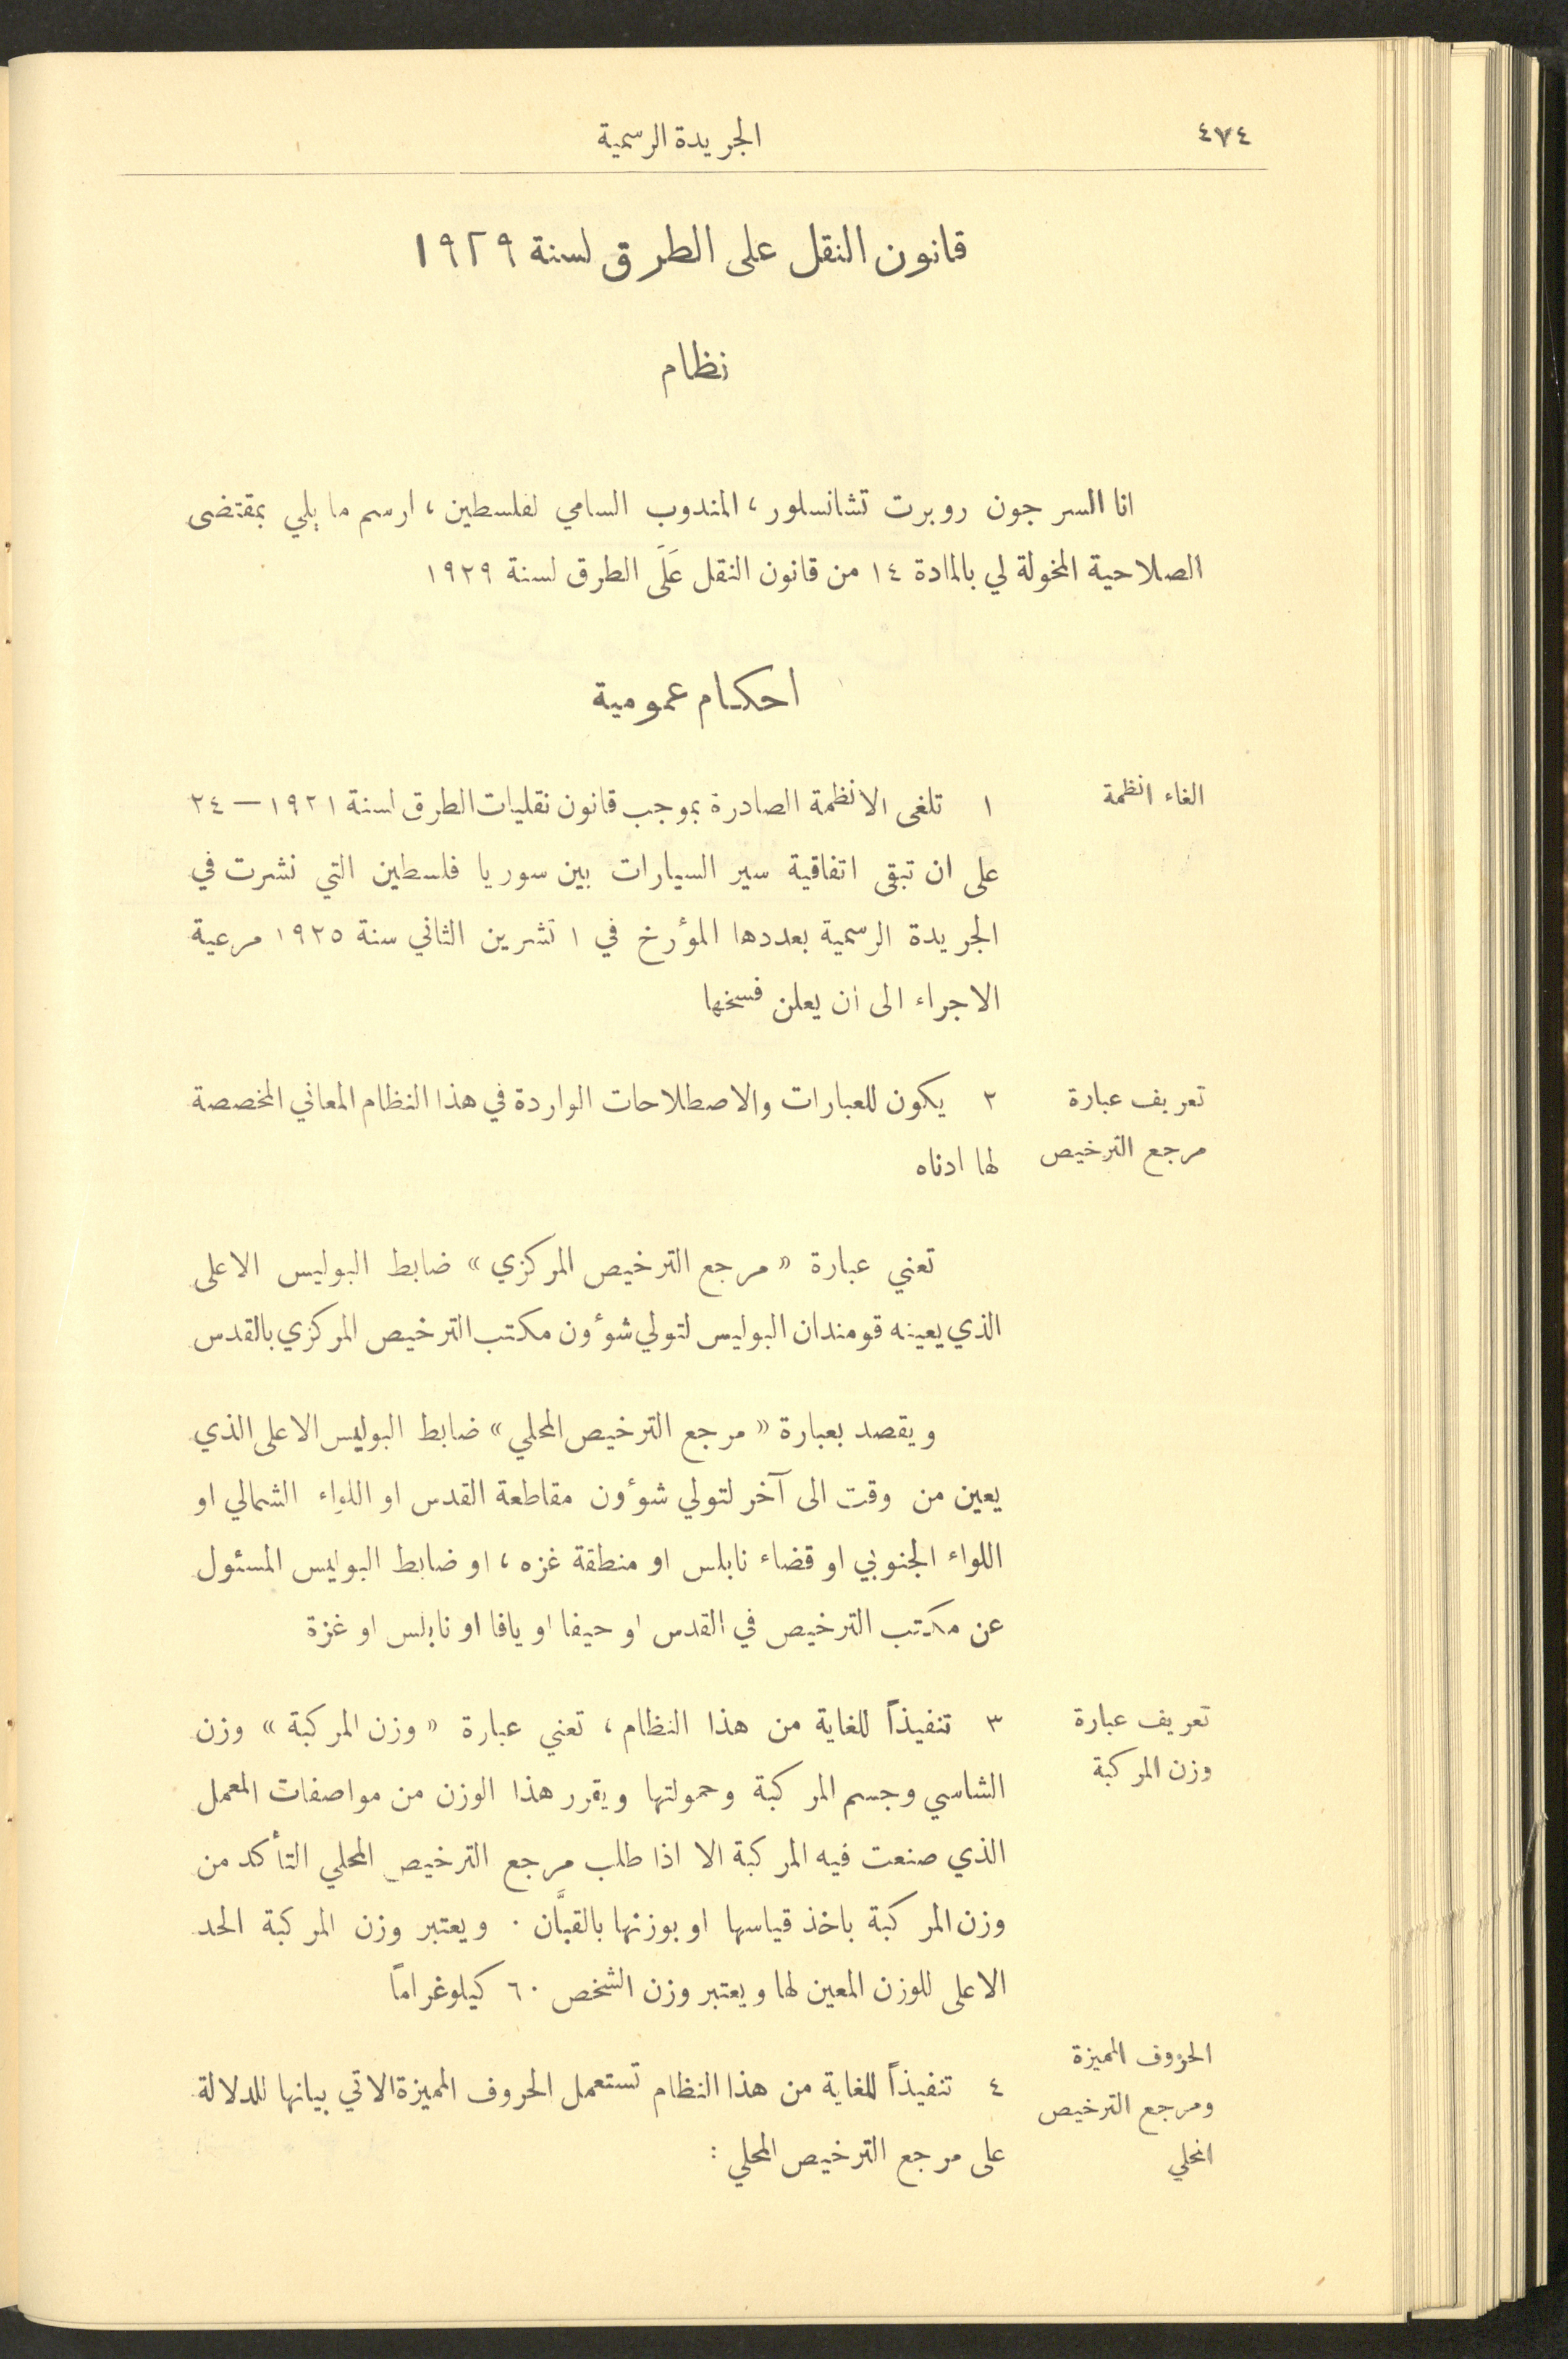 ٤٧٤
الجريدة الرسمية
قانون النقل على الطرق لسنة ١٩٢٩
نظام
انا السر جون روبرت تشانسلور، المندوب السامي لفلسطين، ارسم ما يلي بمقتضى
الصلاحية المخولة لي بالمادة ١٤ من قانون النقل عَلَى الطرق لسنة ١٩٢٩
احكام عمومية
الغاء انظمة
١ تلغى الانظمة الصادرة بموجب قانون نقليات الطرق لسنة ١٩٢١ — ٢٤
على ان تبقى اتفاقية سير السيارات بين سوريا فلسطين التي نشرت في
الجريدة الرسمية بعددها المؤرخ في ١ تشرين الثاني سنة ١٩٢٥ مرعية
الاجراء الى ان يعلن فسخها
تعريف عبارة
مرجع الترخيص
٢ يكون للعبارات والاصطلاحات الواردة في هذا النظام المعاني المخصصة
لها ادناه
تعني عبارة «مرجع الترخيص المركزي» ضابط البوليس الاعلى
الذي يعينه قومندان البوليس لتولي شوُون مكتب الترخيص المركزي بالقدس
ويقصد بعبارة «مرجع الترخيص المحلي» ضابط البوليس الاعلى الذي
يعين من وقت الى آخر لتولي شوُون مقاطعة القدس او اللواء الشمالي او
اللواء الجنوبي او قضاء نابلس او منطقة غزه، او ضابط البوليس المسئول
عن مكتب الترخيص في القدس او حيفا او يافا او نابلس او غزة
تعريف عبارة
وزن المركبة
٣ تنفيذاً للغاية من هذا النظام، تعني عبارة «وزن المركبة» وزن
الشاسي وجسم المركبة وحمولتها ويقرر هذا الوزن من مواصفات المعمل
الذي صنعت فيه المركبة الا اذا طلب مرجع الترخيص المحلي التأكد من
وزن المركبة باخذ قياسها او بوزنها بالقبَّان . ويعتبر وزن المركبة الحد
الاعلى للوزن المعين لها ويعتبر وزن الشخص ٦٠ كيلوغراماً
الحروف المميزة
ومرجع الترخيص
المحلي
٤ تنفيذاً للغاية من هذا النظام تستعمل الحروف المميزة الاتي بيانها للدلالة
على مرجع الترخيص المحلي :